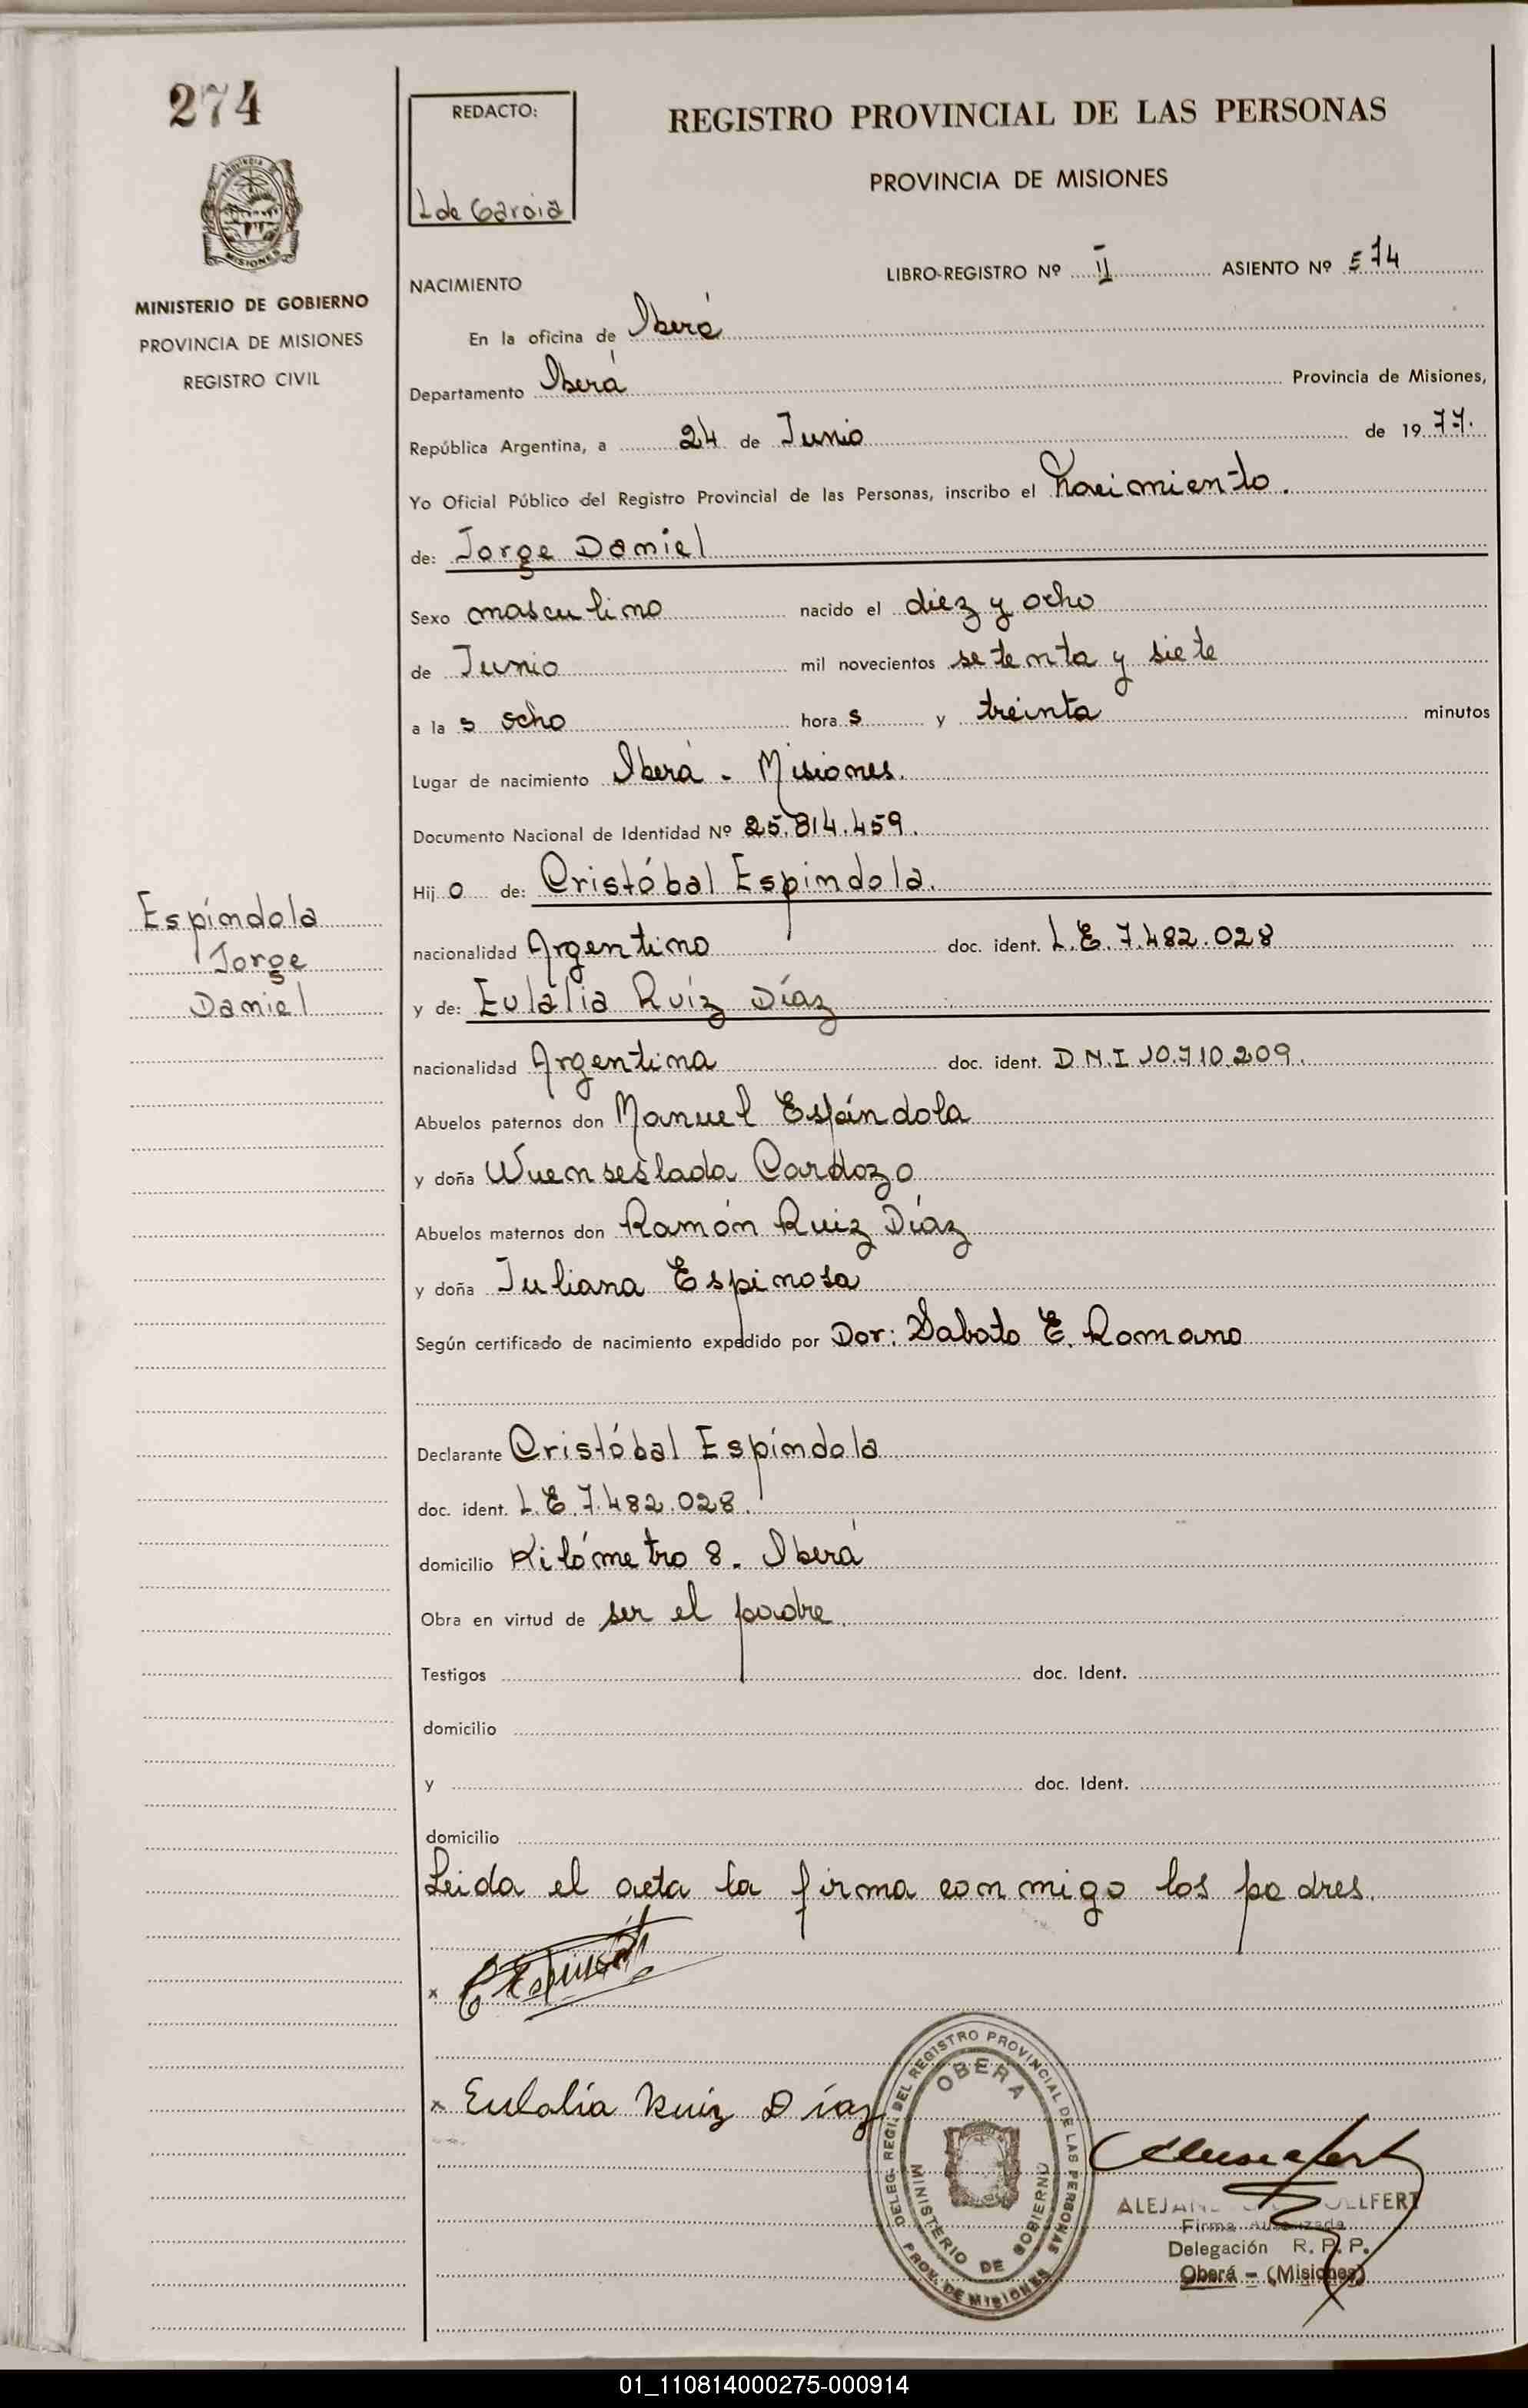 274
REDACTO:
L de Garcia
REGISTRO PROVINCIAL DE LAS PERSONAS
PROVINCIA DE MISIONES
MISIONES
MINISTERIO DE GOBIERNO
PROVINCIA DE MISIONES
REGISTRO CIVIL
NACIMIENTO
LIBRO-REGISTRO Nº II ASIENTO Nº 574
En la oficina de Oberá
Departamento Oberá Provincia de Misiones,
República Argentina, a 24 de Junio de 1977.
Yo Oficial Público del Registro Provincial de las Personas, inscribo el Nacimiento.
de: Jorge Daniel
Sexo masculino nacido el diez y ocho
de Junio mil novecientos setenta y siete
a las ocho horas y treinta minutos
Lugar de nacimiento Oberá - Misiones.
Documento Nacional de Identidad Nº 25.814.459.
Hijo de: Cristóbal Espíndola.
nacionalidad Argentino doc. ident. L.E. 7.482.028
y de: Eulalia Ruíz Díaz
nacionalidad Argentina doc. ident. D.N.I 10.710.209.
Espíndola
Jorge
Daniel
Abuelos paternos don Manuel Espíndola
y doña Wuenseslada Cardozo
Abuelos maternos don Ramón Ruiz Díaz
y doña Juliana Espinosa
Según certificado de nacimiento expedido por Dor: Sabato E. Romano
Declarante Cristóbal Espíndola
doc. ident. L.E. 7.482.028.
domicilio Kilómetro 8. Oberá
Obra en virtud de ser el padre.
Testigos doc. Ident.
domicilio
y doc. Ident.
domicilio
Leida el acta la firma conmigo los padres.
x
x Eulalia Ruiz Díaz
DELEG. REGI. DEL REGISTRO PROVINCIAL DE LAS PERSONAS
OBERA
MINISTERIO DE GOBIERNO
PROV. DE MISIONES
Firma Autorizada
Delegación R. P. P.
Oberá - (Misiones)
01_110814000275-000914